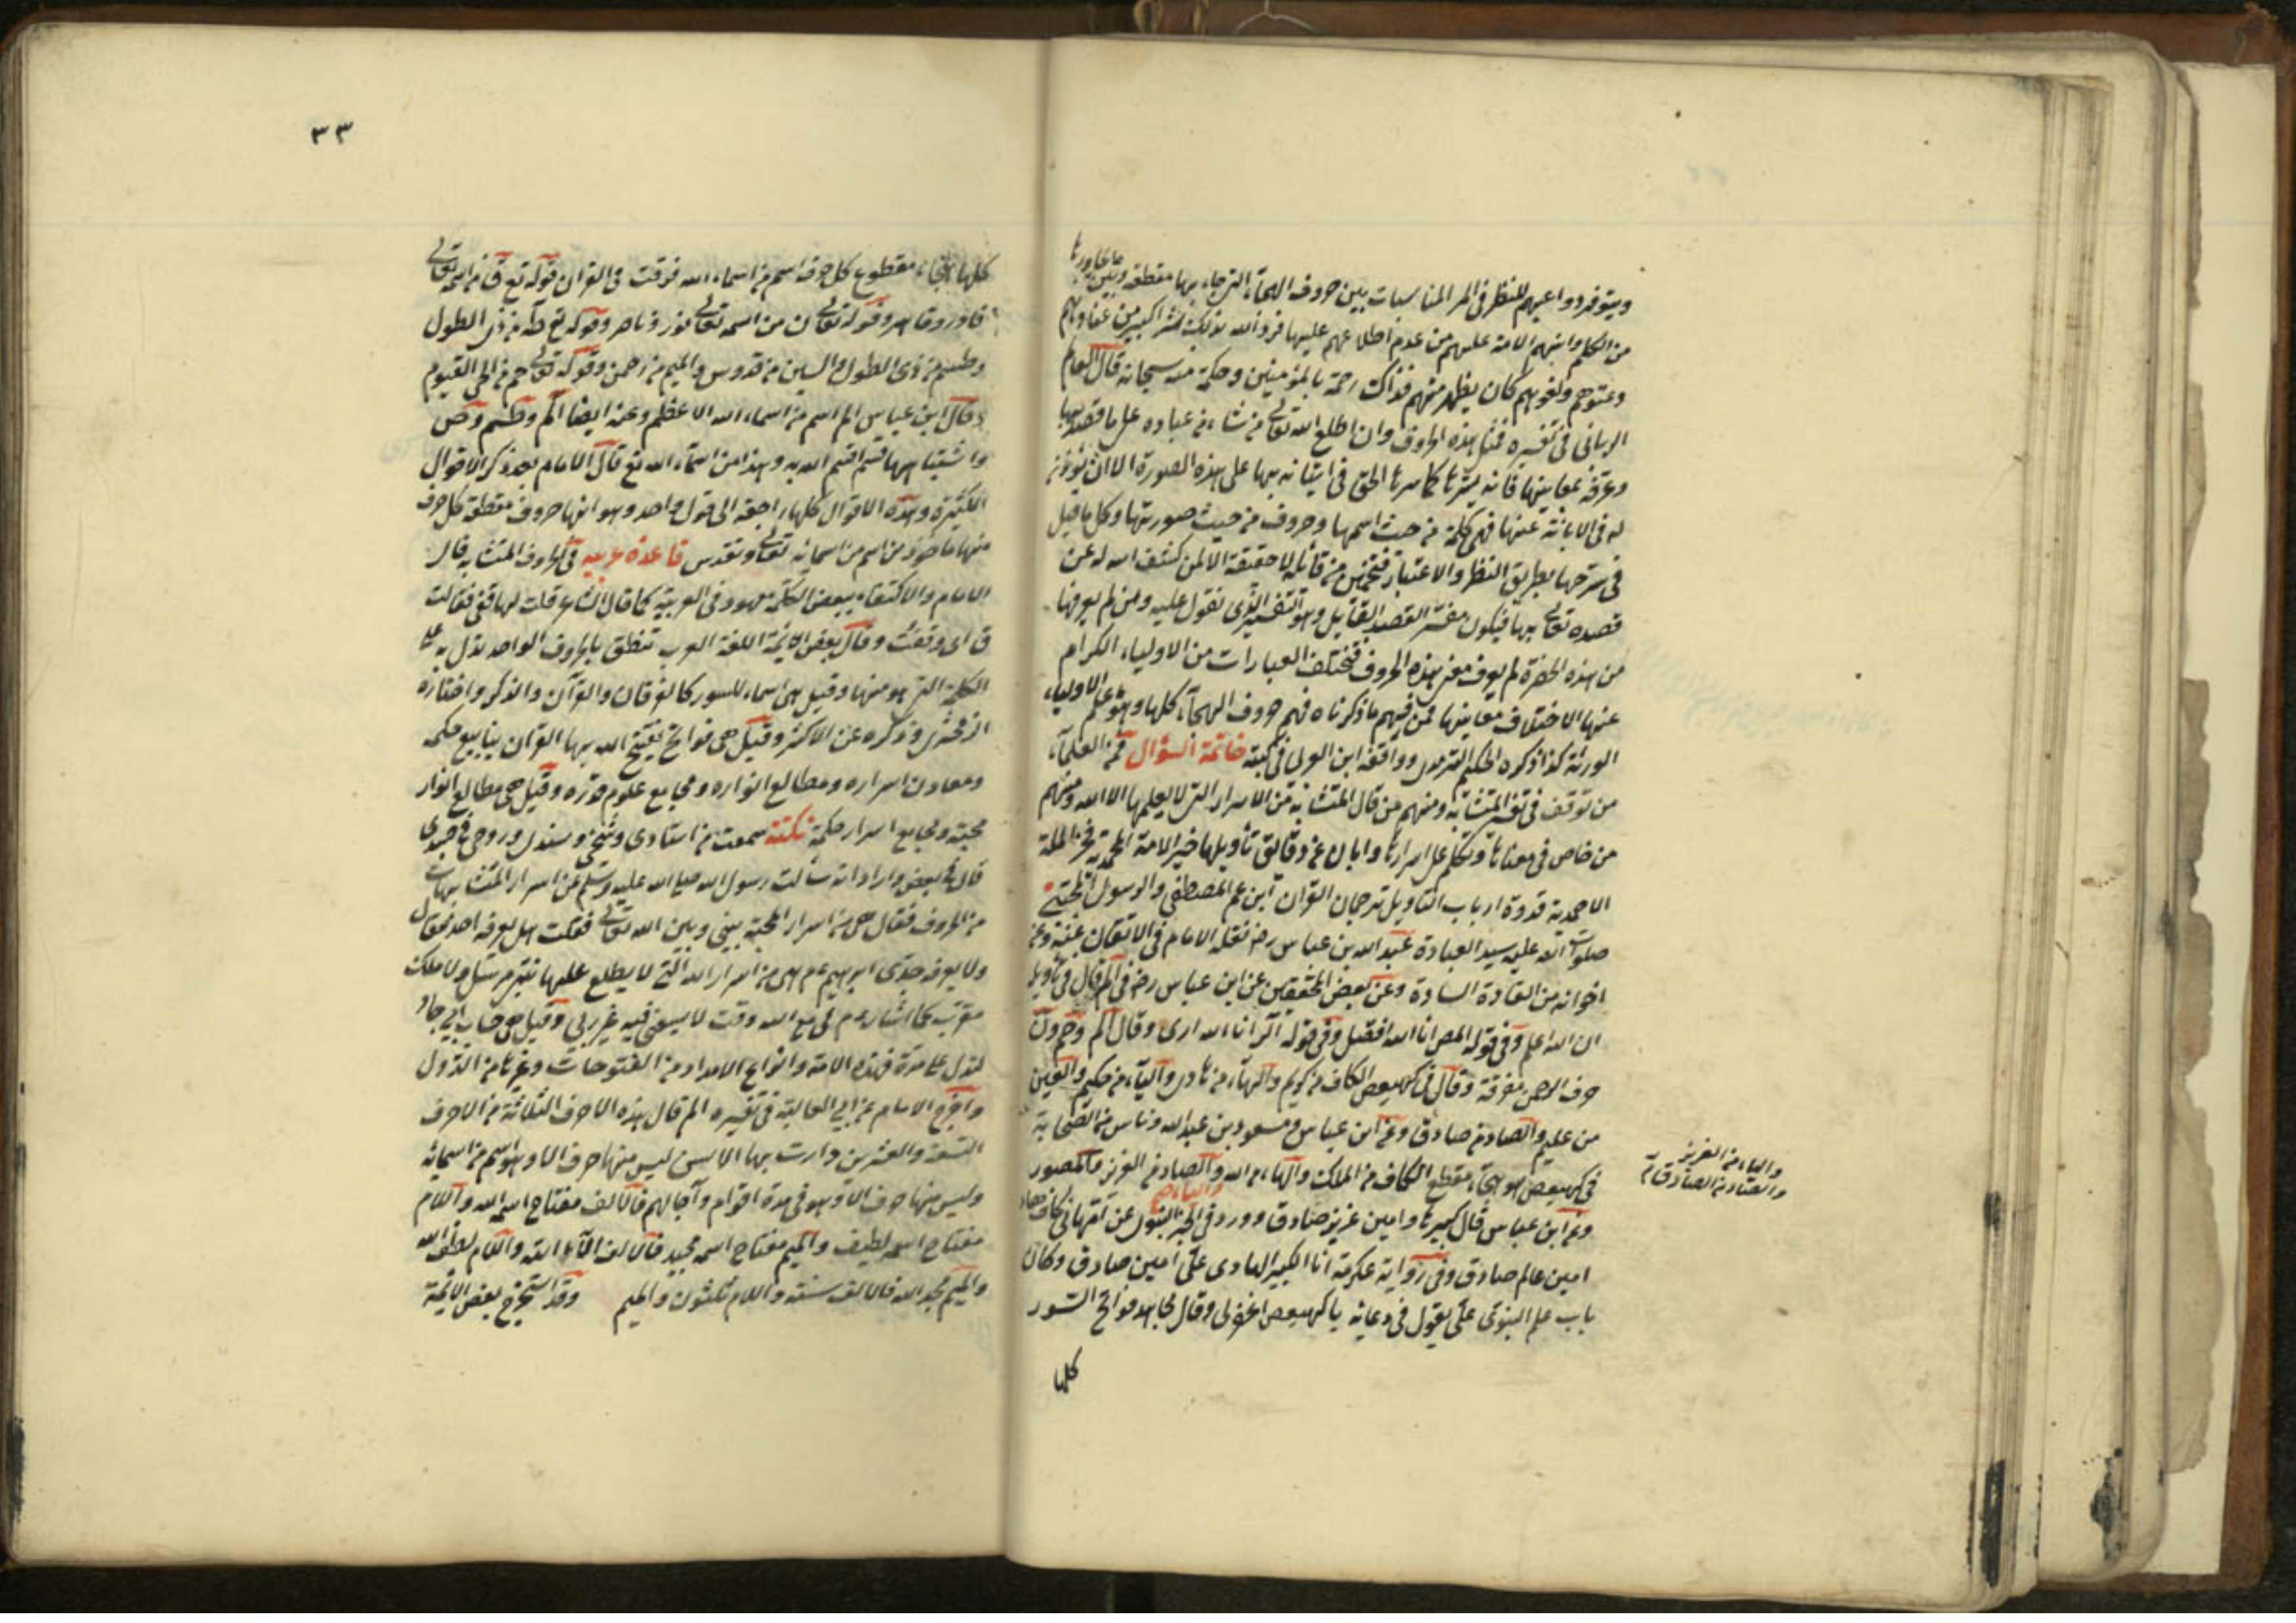 ويتوفر دواعيهم للنظر في المناسبات بين حروف الهجاء التي جاء بها مقطعة وبين ما جاورها
من الكلم وابنهم الامة عليهم من عدم اطلاعهم عليها فرد الله بذلك شرا كبيرا من عنادهم
وعتوهم ولغوهم كان يظهر منهم فذلك رحمة بالمؤمنين وحكمة منه سبحانه قال الامام
الرباني في تفسيره فمثل هذه الحروف وان اطلع الله تعالى من شاء من عباده على ما قصد بها
وعرفه بمعانيها فانه يسترها كما سترها الحق في اتيانه بها على هذه الصورة الا ان يؤذن
له في الابانة عنها فهي كلمة من حيث اسمها وحروف من حيث صورتها وكل ما قيل
في شرحها بطريق النظر والاعتبار فتخمين من قائله لا حقيقة الا لمن كشف الله له عن
قصده تعالى بها فيكون مفسر القصد القايل وهو التفسير الذي نقول عليه ومن لم يعرفها
من هذه الحضرة لم يعرف معنى هذه الحروف فتختلف العبارات من الاولياء الكرام
عنها لاختلاف معانيها فمن فهم ما ذكرناه فهم حروف الهجاء كلها وهو علم الاولياء
الورثة كذا ذكره الحكيم الترمذي ووافقه ابن العربي في كتبه خاتمة السؤال فمن العلماء
من توقف في تفسير المتشابه ومنهم من قال المتشابه من الاسرار التي لا يعلمها الا الله ومنهم
من خاض في معناها وتكلم على اسرارها وابان عن دقائق تأويلها خير الامة المحمدية فخر الملة
الاحمدية قدوة ارباب التأويل ترجمان القرآن ابن عم المصطفى والرسول المجتبى
صلوات الله عليه سيد العبادة عبد الله بن عباس رضه نقله الامام في الاتقان عنه وعن
اخوانه من القادة السادة وعن بعض المحققين عن ابن عباس رضه في الم قال في تأويل
ان الله اعلم وفي قوله المص انا الله افصل وفي قوله الر انا الله ارى وقال الم وحم ون
حروف الرحمن مفرقة وقال في كهيعص الكاف من كريم والهاء من هادي والياء من حكيم والعين
من عليم والصاد من صادق وعن ابن عباس ومسعود بن عبد الله وناس من الصحابة
في كهيعص هو هجاء مقطع الكاف من الملك والهاء من الله والصاد من العزيز والمصور
والياء
وعن ابن عباس قال كبير هاد امين عزيز صادق وورد في الخبر النبوي عن امهاني كاف هاد
امين عالم صادق وفي رواية عكرمة انا الكبير الهادي علي امين صادق وكان
باب علم النبوي علي يقول في دعائه يا كهيعص اغفر لي وقال مجاهد فواتح السور
كلها
والياء من العزيز
والصاد من الصادق
٣٣
كلها هجاء مقطوع كل حرف اسم من اسماء الله فرقت في القرآن قوله تع ق من اسمه تعالى
قادر وقاهر وقوله تعالى ن من اسمه تعالى نور وناصر وقوله تع طه من ذي الطول
وطسم من ذي الطول والسين من قدوس والميم من رحمن وقوله تعالى حم من الحي القيوم
وقال ابن عباس الم اسم من اسماء الله الاعظم وعنه ايضا الم وطسم وص
واشباهها قسم اقسم الله به وهذا من اسماء الله تع قال الامام بعد ذكر الاقوال
الكثيرة وهذه الاقوال كلها راجعة الى قول واحد وهو انها حروف مقطعة كل حرف
منها مأخوذ من اسم من اسمائه تعالى وتقدس قاعدة عربية في الحروف المتشابه قال
الامام والاكتفاء ببعض الكلمة معهود في العربية كما قال الشاعر قلت لها قفي فقالت
ق اي وقفت وقال بعض الائمة اللغة العرب تنطق بالحروف الواحد تدل به على
الكلمة التي هو منها وقيل هي اسماء للسور كالفرقان والقرآن والذكر واختاره
الزمخشري وذكره عن الاكثر وقيل هي فواتح يفتتح الله بها القرآن ينابيع حكمه
ومعادن اسراره ومطالع انواره ومجامع علوم قدره وقيل هي مطالع انوار
محبته ومجامع اسرار حكمة نكتة سمعت من استادي وشيخي وسندي وروحي في جسدي
قال في بعض وارداته سألت رسول الله صلى الله عليه وسلم عن اسرار المتشابهات
من الحروف فقال هي من اسرار المحبة بيني وبين الله تعالى فقلت هل يعرفه احد فقال
ولا يعرفه جدي ابرهيم عم هي من اسرار الله التي لا يطلع عليها نبي مرسل ولا ملك
مقرب كما اشار عم لي مع الله وقت لا يسعني فيه غير ربي وقيل هي حساب ابي جاد
لتدل على مدة هذه الامة وانواع الامداد من الفتوحات وغيرها من الدول
واخرج الامام عن ابي العالية في تفسيره الم قال هذه الاحرف الثلاثة من الاحرف
التسعة والعشرين دارت بها الالسن ليس منها حرف الا وهو اسم من اسمائه
وليس منها حرف الا وهو في مدة اقوام وآجالهم فالالف مفتاح اسمه الله واللام
مفتاح اسمه لطيف والميم مفتاح اسمه مجيد فالالف آلاء الله واللام لطف الله
والميم مجد الله فالالف سنة واللام ثلثون والميم وقد استخرج بعض الائمة